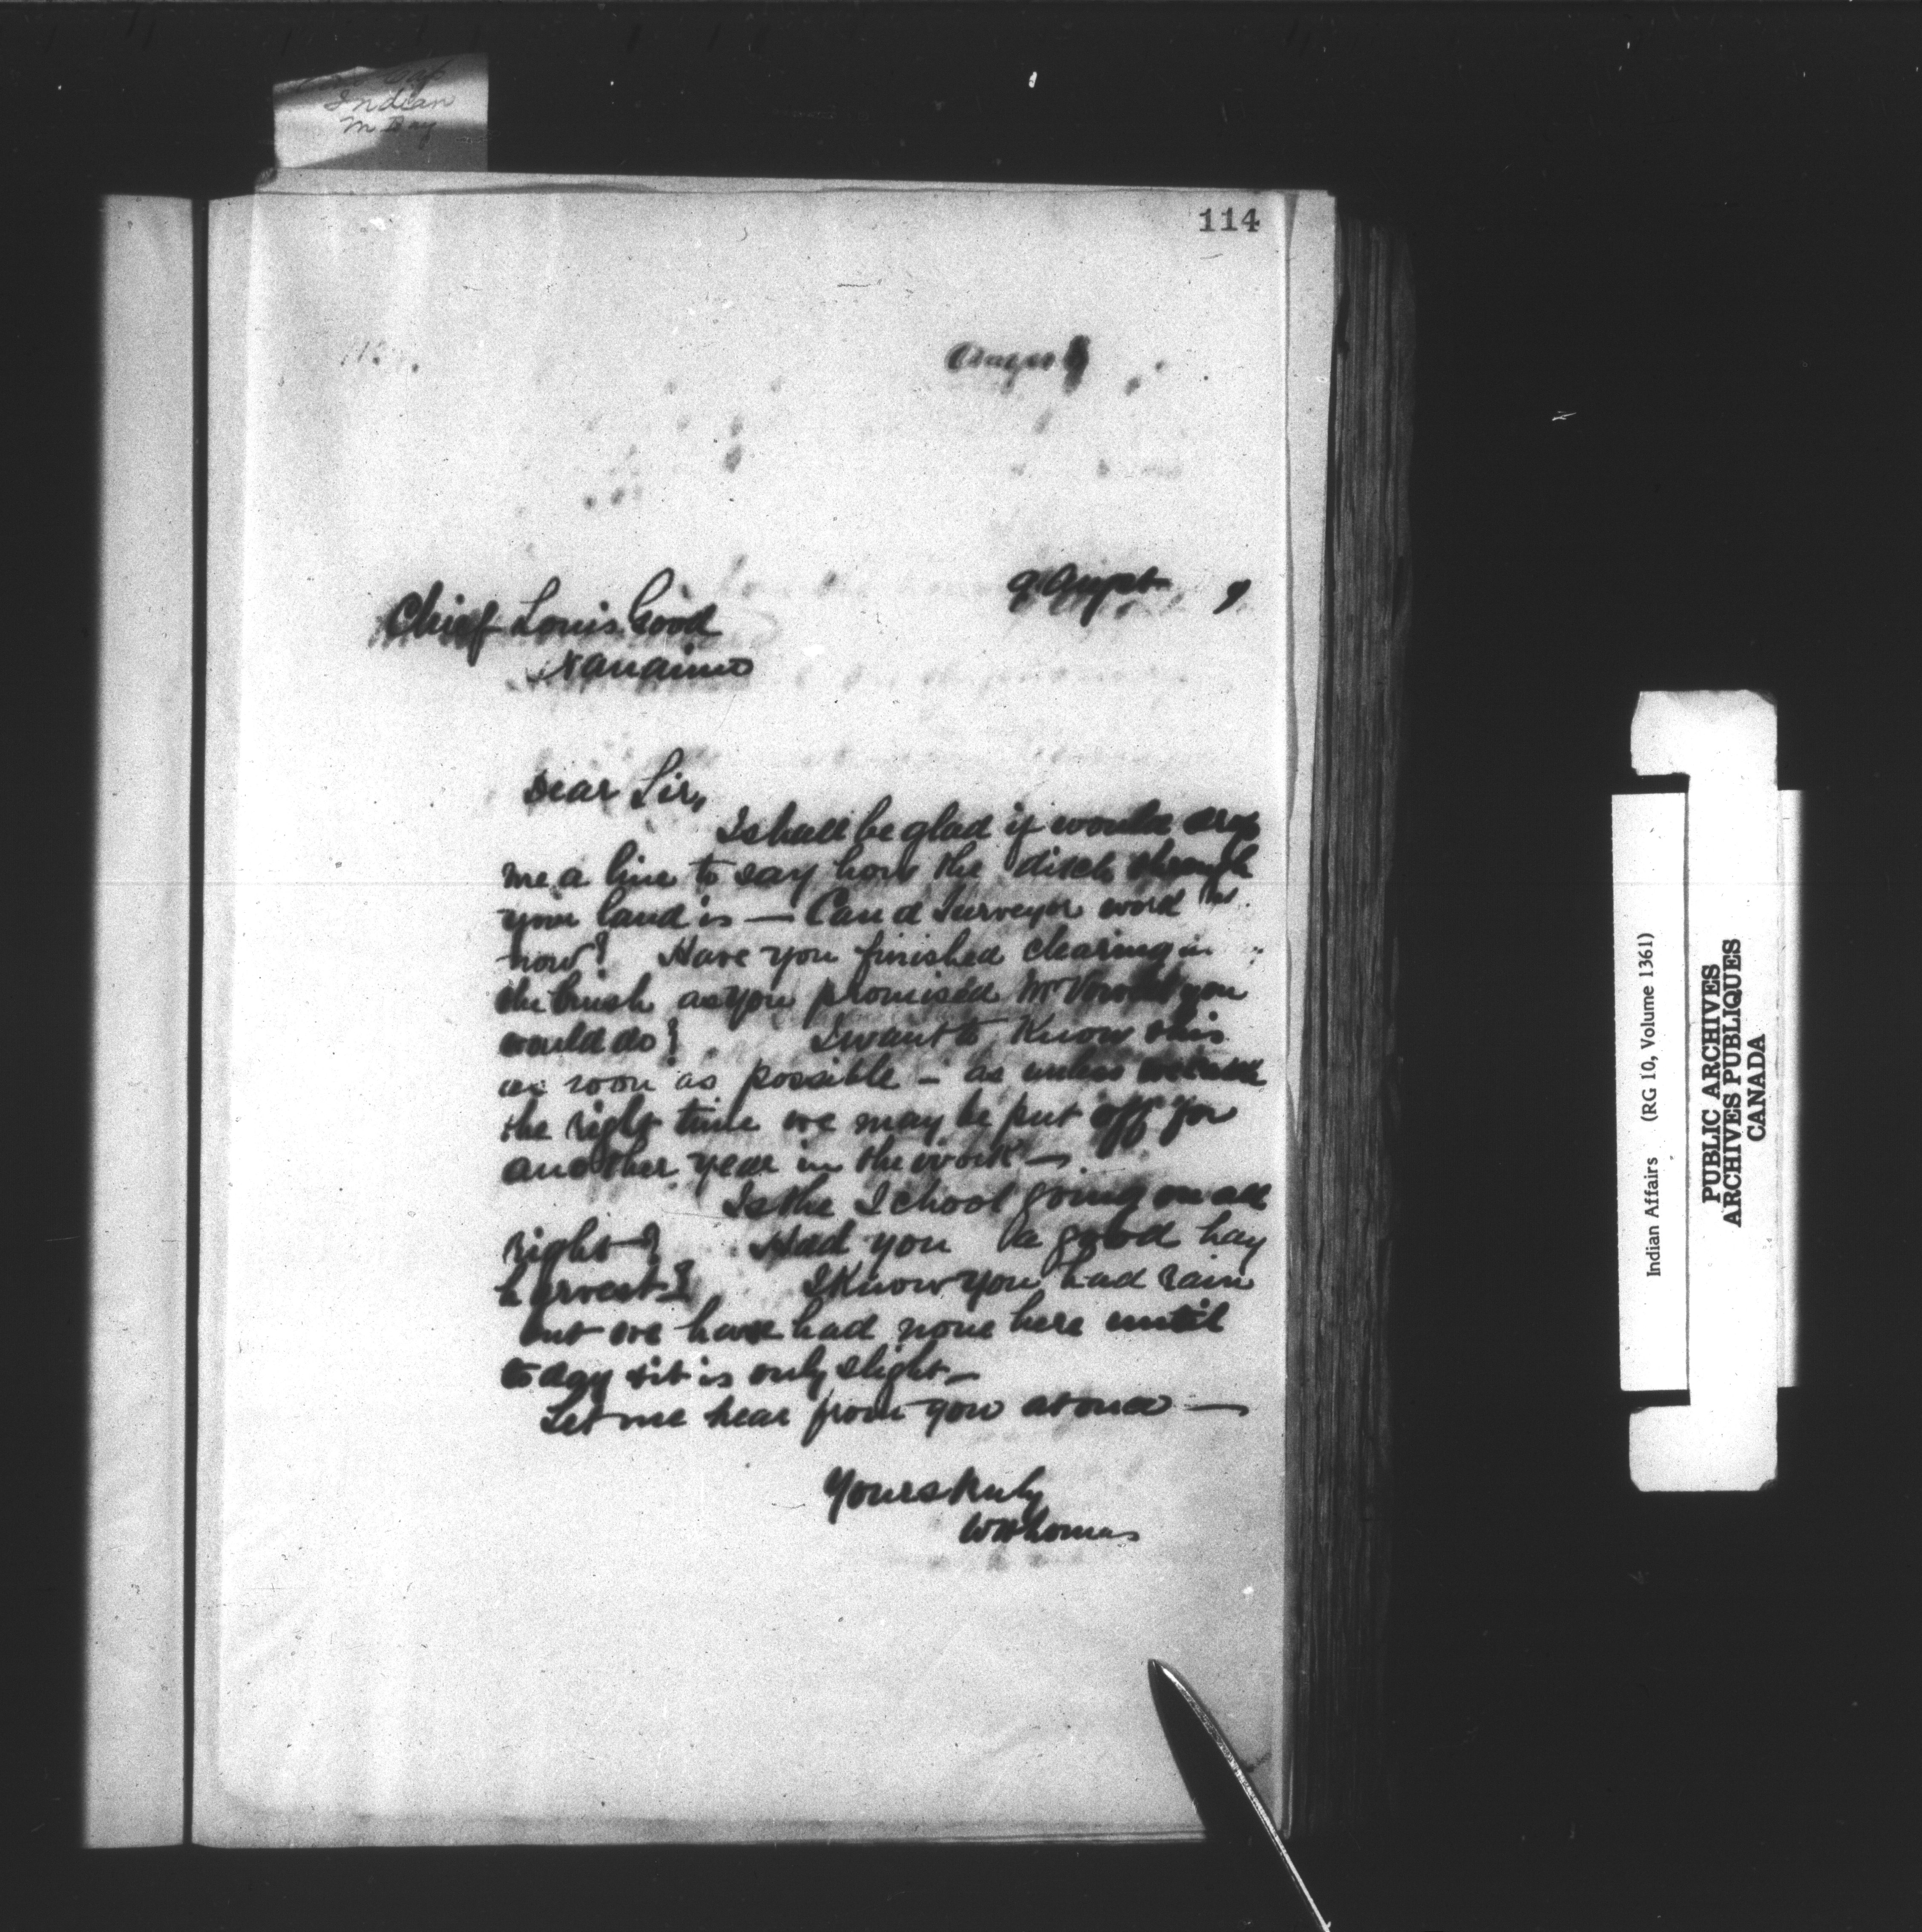 Indian
114
August
9 August 9
Chief Louis Good
Nanaimo
Dear Sir,
I shall be glad if would drop
me a line to say how the ditch through
your land is — Can a Surveyor
now? Have you finished clearing
the brush as you promised Mr you
would do? I want to know this
as soon as possible — as unless
the right time we may be put off for
another year in the work —
Is the School going on all
right? Had you a good hay
harvest? I know you had rain
but we have had none here until
today & it is only slight —
Let me hear from you at once —
Yours truly
Indian Affairs (RG 10, Volume 1361)
PUBLIC ARCHIVES
ARCHIVES PUBLIQUES
CANADA